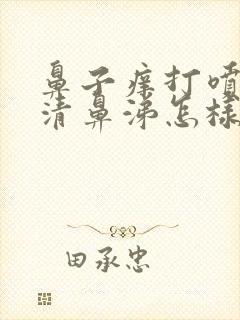 鼻子痒打喷
清鼻涕怎样
田承忠